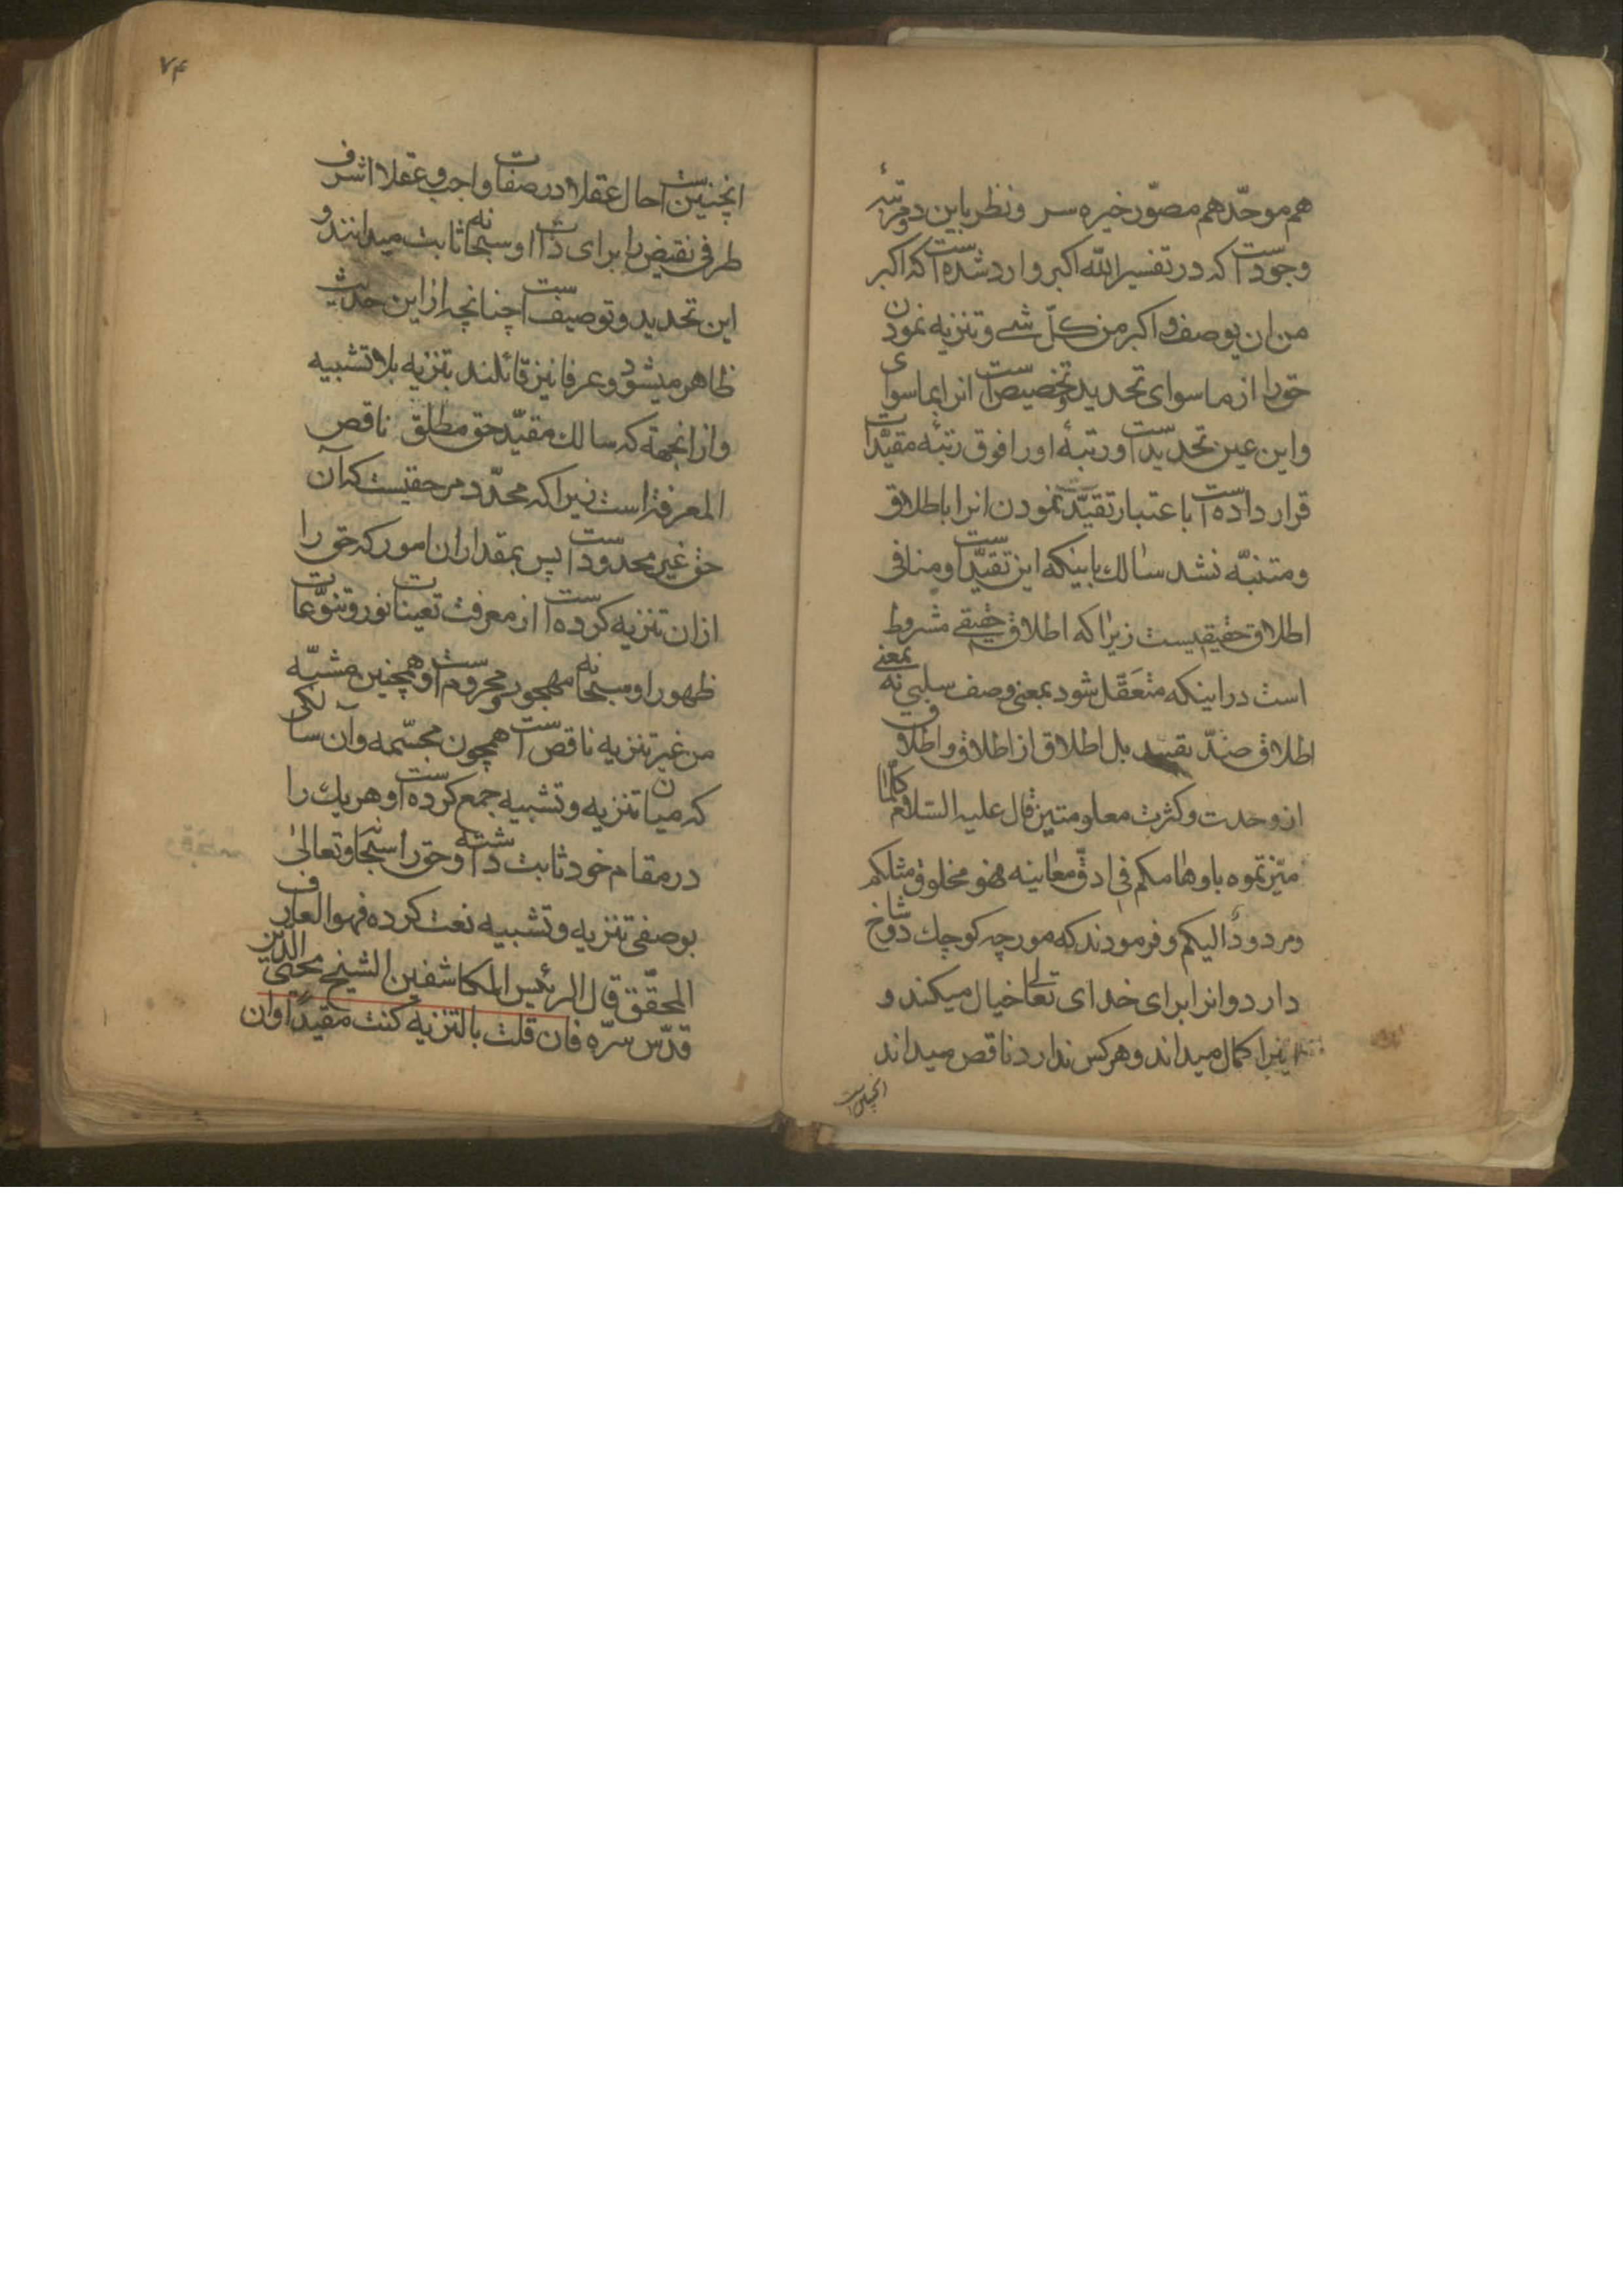 هم موحّد هم مصوّر خیره سر و نظر باین دو مرتبهٔ
وجود است که در تفسیر الله اکبر وارد شده است که اکبر
من ان یوصف و اکبر من کلّ شے و تنزیه نمودن
حق را از ماسوای تحدید و تخصیص است انرا بماسوای
و این عین تحدید است و رتبهٔ او را فوق رتبهٔ مقیّدات
قرار داده است با عتبار تقیّد نمودن انرا باطلاق
و متنبّه نشد سالك باینکه این تقیّد است و منافی
اطلاق حقیقیست زیرا که اطلاق حقیقے مشروط
است در اینکه متعَقّل شود بمعنی وصف سلبی نه بمعنی
اطلاق ضدّ تقیید بل اطلاق از اطلاق و اطلاق
از وحدت و کثرت معلومتین قال علیه السّلام کلّما
میّزتموه باوهامکم فی ادقّ معانیه فهو مخلوق مثلکم
مردودٌ الیکم و فرمودند که مورچه کوچك دو شاخ
دارد و انرا برای خدای تعالی خیال میکند و
اینرا کمال میداند و هر کس ندارد ناقص میداند
انچنین است
۷۴
انچنین است احال عقلا در صفات واجب و عقلا اشرف
طرفی نقیض را برای ذات او سبحانه ثابت میدانند و
این تحدید و توصیف است چنانچه از این حدیث
ظاهر میشود و عرفا نیز قائلند بتنزیه بلا تشبیه
و از انجهة که سالك مقیّد حق مطلق ناقص
المعرفة است زیرا که محدّد مر حقیست که آن
حق غیر محدود است پس بمقدار ان امور که حق را
از ان تنزیه کرده است از معرفت تعینات نور و تنوّعات
ظهور او سبحانه مهجور و محروم است و همچنین مشبّه
من غیر تنزیه ناقص است همچون مجسّمه و ان سالکی
که میان تنزیه و تشبیه جمع کرده است و هر یك را
در مقام خود ثابت داشته و حق را سبحانه و تعالیٰ
بوصفی تنزیه و تشبیه نعت کرده فهو العارف
المحقّق قال الرئیس المکاشفین الشیخ محیی الدّین
قدّس سرّه فان قلت بالتنزیه کنت مقیّداً و ان